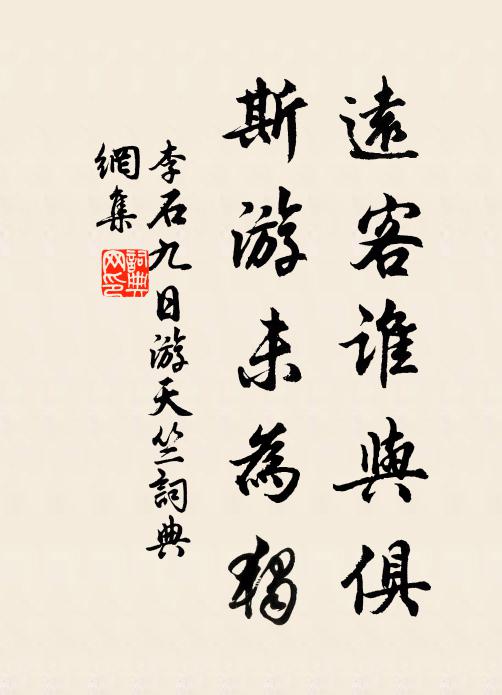 遠客誰與俱
斯游未為獨
李石九日游天竺詞典
網集
詞典
网印